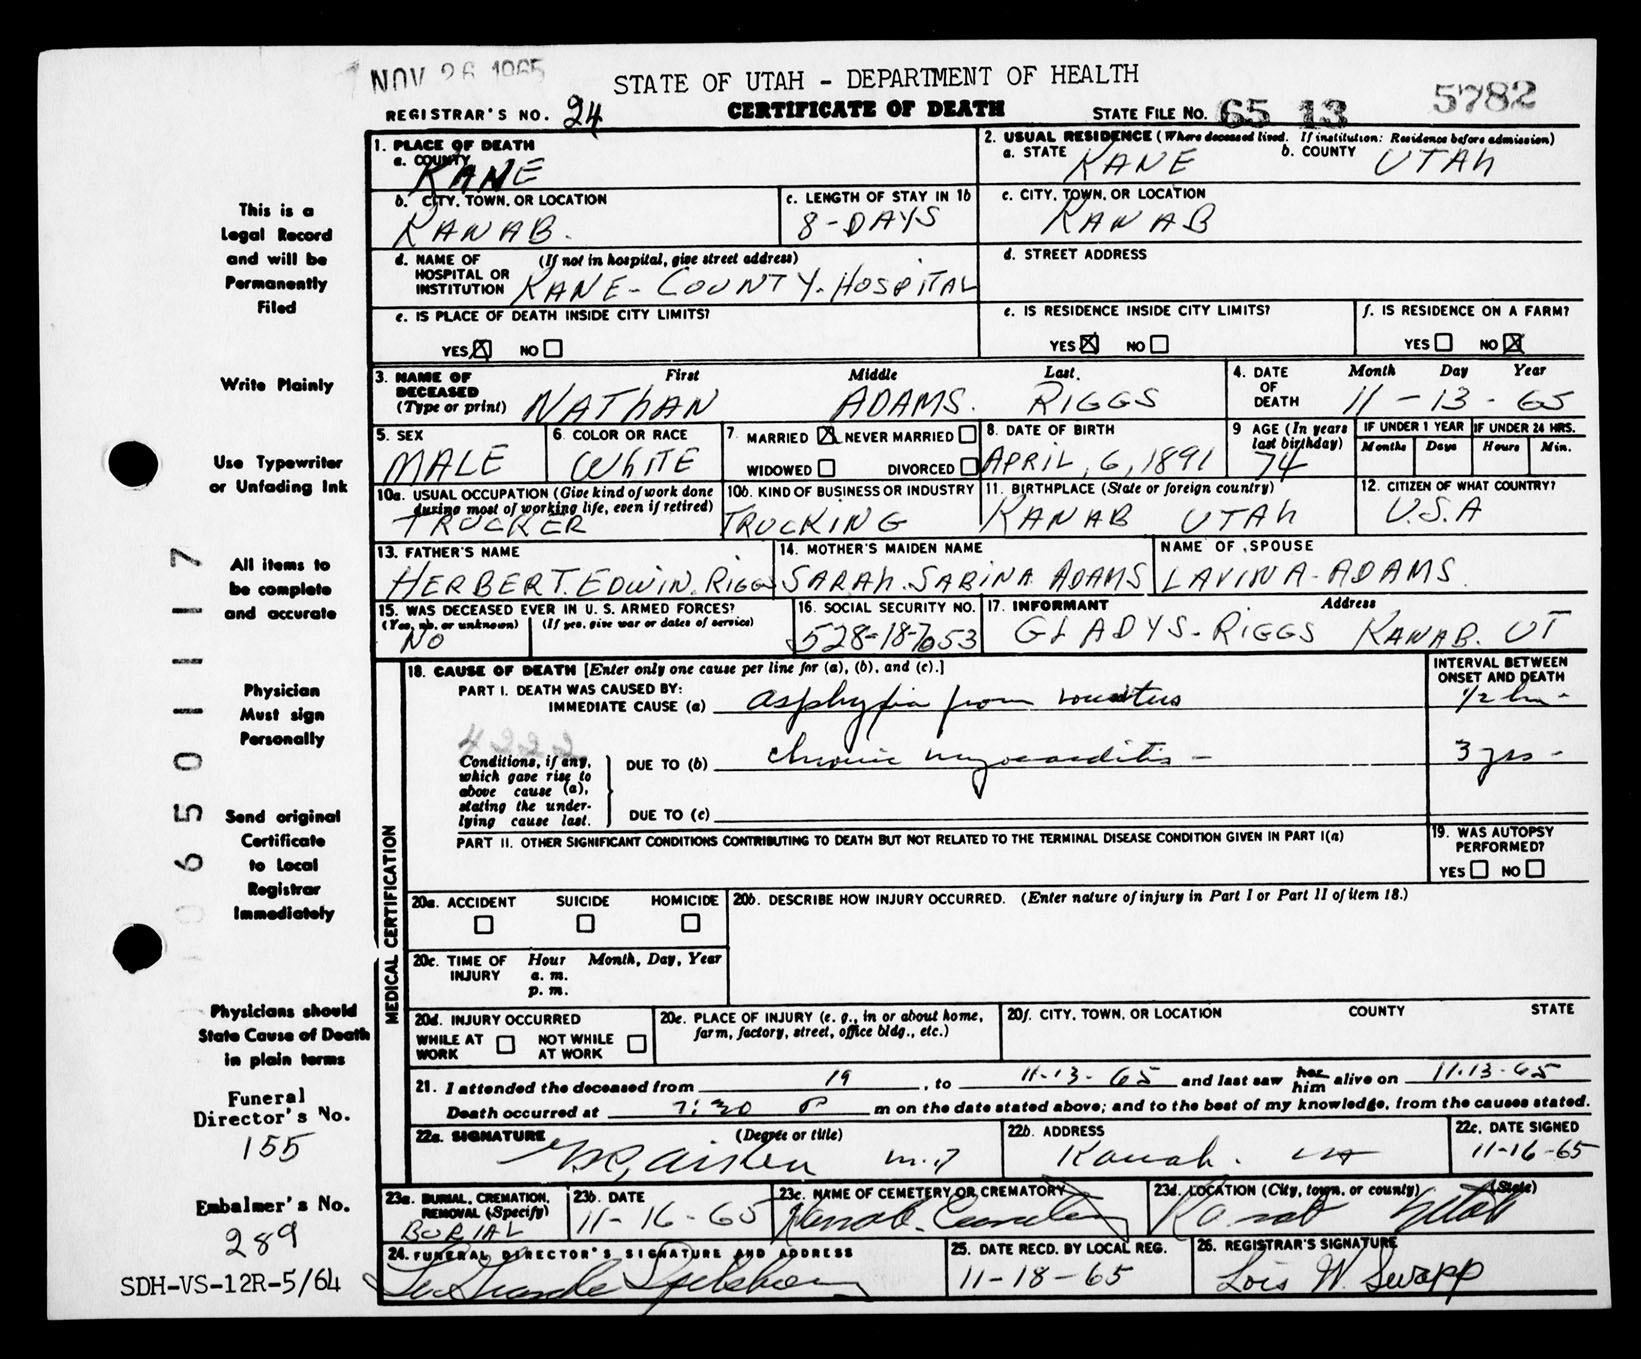 NOV 26 1965
STATE OF UTAH - DEPARTMENT OF HEALTH
REGISTRAR'S NO. 24 CERTIFICATE OF DEATH STATE FILE NO. 65 13 5782
1. PLACE OF DEATH
a. COUNTY
KANE
2. USUAL RESIDENCE (Where deceased lived. If institution: Residence before admission)
a. STATE KANE b. COUNTY UTAH
b. CITY, TOWN, OR LOCATION
KANAB.
c. LENGTH OF STAY IN 1b
8-DAYS
c. CITY, TOWN, OR LOCATION
KANAB
d. NAME OF HOSPITAL OR INSTITUTION (If not in hospital, give street address)
KANE-COUNTY-HOSPITAL
d. STREET ADDRESS
e. IS PLACE OF DEATH INSIDE CITY LIMITS?
YES ☒ NO ☐
e. IS RESIDENCE INSIDE CITY LIMITS?
YES ☒ NO ☐
f. IS RESIDENCE ON A FARM?
YES ☐ NO ☒
3. NAME OF DECEASED (Type or print)
First Middle Last
NATHAN ADAMS. RIGGS
4. DATE OF DEATH
Month Day Year
11-13-65
5. SEX
MALE
6. COLOR OR RACE
WHITE
7. MARRIED ☒ NEVER MARRIED ☐
WIDOWED ☐ DIVORCED ☐
8. DATE OF BIRTH
APRIL, 6, 1891
9 AGE (In years last birthday)
74
IF UNDER 1 YEAR
Months Days
IF UNDER 24 HRS.
Hours Min.
10a. USUAL OCCUPATION (Give kind of work done during most of working life, even if retired)
TRUCKER
10b. KIND OF BUSINESS OR INDUSTRY
TRUCKING
11. BIRTHPLACE (State or foreign country)
KANAB UTAH
12. CITIZEN OF WHAT COUNTRY?
U.S.A
13. FATHER'S NAME
HERBERT. EDWIN. RIGGS
14. MOTHER'S MAIDEN NAME
SARAH. SABINA ADAMS
NAME OF SPOUSE
LAVINA-ADAMS
15. WAS DECEASED EVER IN U. S. ARMED FORCES?
(Yes, no, or unknown) (If yes, give war or dates of service)
NO
16. SOCIAL SECURITY NO.
528-18-7053
17. INFORMANT Address
GLADYS-RIGGS KANAB. UT
18. CAUSE OF DEATH [Enter only one cause per line for (a), (b), and (c).]
PART I. DEATH WAS CAUSED BY:
IMMEDIATE CAUSE (a) asphyxia from vomitus
INTERVAL BETWEEN ONSET AND DEATH
1/2 hr-
4222
Conditions, if any, which gave rise to above cause (a), stating the underlying cause last.
DUE TO (b) chronic myocarditis -
3 yrs -
DUE TO (c)
PART II. OTHER SIGNIFICANT CONDITIONS CONTRIBUTING TO DEATH BUT NOT RELATED TO THE TERMINAL DISEASE CONDITION GIVEN IN PART I(a)
19. WAS AUTOPSY PERFORMED?
YES ☐ NO ☐
MEDICAL CERTIFICATION
20a. ACCIDENT SUICIDE HOMICIDE
☐ ☐ ☐
20b. DESCRIBE HOW INJURY OCCURRED. (Enter nature of injury in Part I or Part II of item 18.)
20c. TIME OF INJURY
Hour Month, Day, Year
a. m.
p. m.
20d. INJURY OCCURRED
WHILE AT WORK ☐ NOT WHILE AT WORK ☐
20e. PLACE OF INJURY (e. g., in or about home, farm, factory, street, office bldg., etc.)
20f. CITY, TOWN, OR LOCATION COUNTY STATE
21. I attended the deceased from 19, to 11-13-65 and last saw her him alive on 11-13-65
Death occurred at 7:30 P m on the date stated above; and to the best of my knowledge, from the causes stated.
22a. SIGNATURE (Degree or title)
Aiken M.D
22b. ADDRESS
Kanab. Ut
22c. DATE SIGNED
11-16-65
23a. BURIAL, CREMATION, REMOVAL (Specify)
BURIAL
23b. DATE
11-16-65
23c. NAME OF CEMETERY OR CREMATORY
Kanab. Cemetery
23d. LOCATION (City, town, or county) (State)
Kanab Utah
24. FUNERAL DIRECTOR'S SIGNATURE AND ADDRESS
25. DATE RECD. BY LOCAL REG.
11-18-65
26. REGISTRAR'S SIGNATURE
Lois W. Swapp
This is a
Legal Record
and will be
Permanently
Filed
Write Plainly
Use Typewriter
or Unfading Ink
All items to
be complete
and accurate
Physician
Must sign
Personally
Send original
Certificate
to Local
Registrar
Immediately
Physicians should
State Cause of Death
in plain terms
Funeral
Director's No.
155
Embalmer's No.
289
SDH-VS-12R-5/64